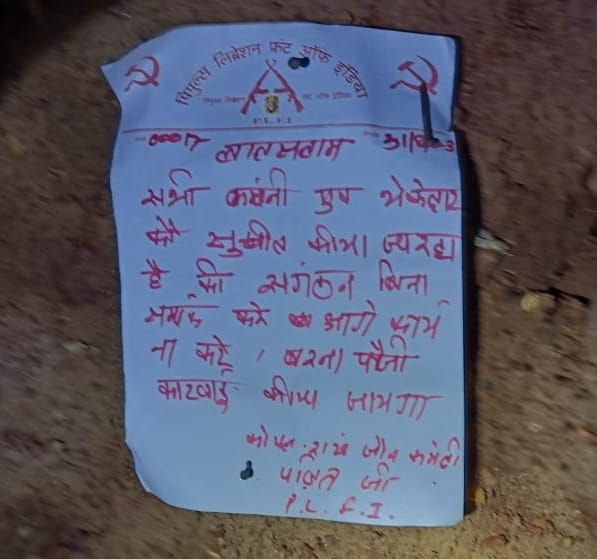 पिपुल्स लिबरेशन फ्रंट ऑफ इंडिया
P.L.F.I
00017 लालसलाम 31/
सभी कंपनी एवं ठेकेदार
को सुचीत कीया जा रहा
है की संगठन बिना
सम्पर्क करे आगे कार्य
ना करे, वरना फौजी
कारवाई कीया जायगा
जोन कमेटी
जी
P.L.F.I.